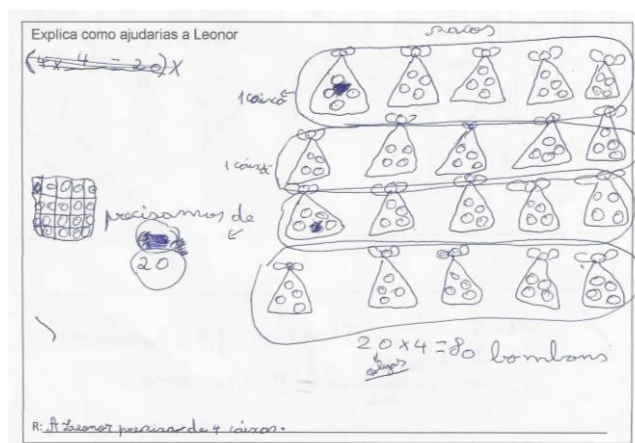 Explica como ajudarias a Leonor
sacos
(4 x 4 = 20) x
1 caixa
1 caixa
precisamos de
20
20 x 4 = 80 bombons
R: A Leonor precisa de 4 caixas.